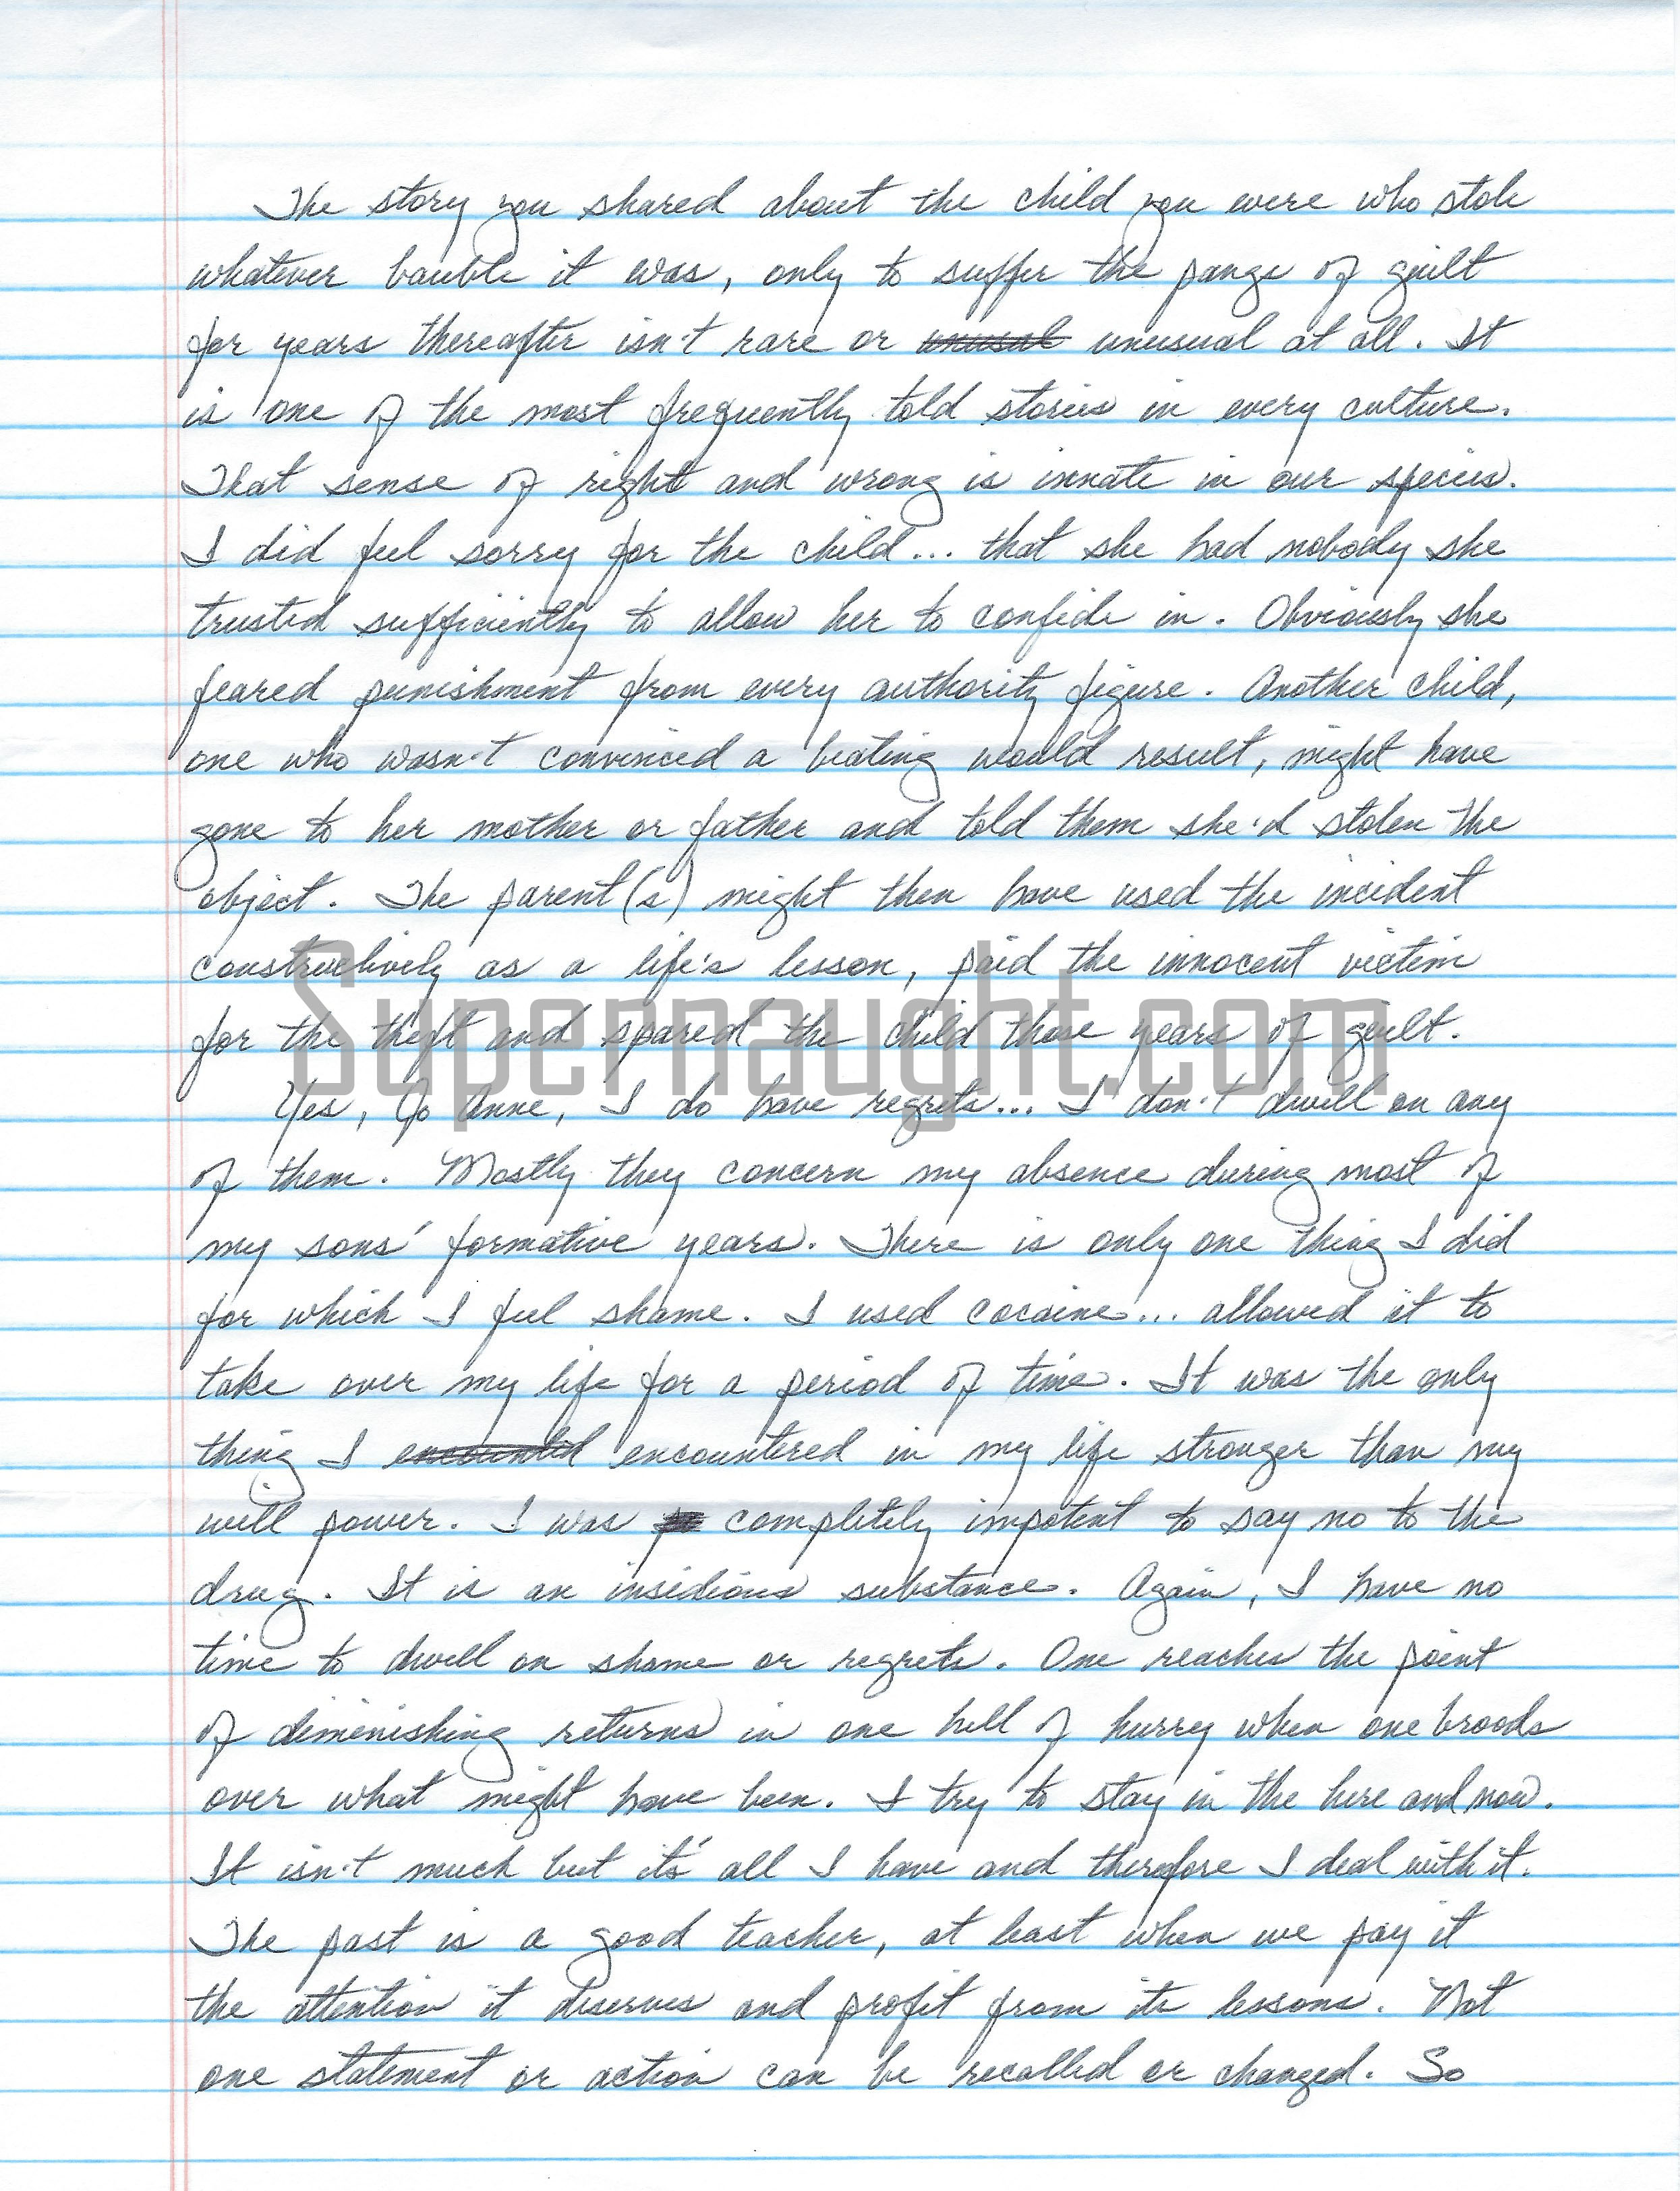 The story you shared about the child you were who stole
whatever bauble it was, only to suffer the pangs of guilt
for years thereafter isn't rare or unusal unusual at all. It
is one of the most frequently told stories in every culture.
That sense of right and wrong is innate in our species.
I did feel sorry for the child... that she had nobody she
trusted sufficiently to allow her to confide in. Obviously she
feared punishment from every authority figure. Another child,
one who wasn't convinced a beating would result, might have
gone to her mother or father and told them she'd stolen the
object. The parent(s) might then have used the incident
constructively as a life's lesson, paid the innocent victim
for the theft and spared the child those years of guilt.
Supernaught.com
Yes, Jo Anne, I do have regrets... I don't dwell on any
of them. Mostly they concern my absence during most of
my sons' formative years. There is only one thing I did
for which I feel shame. I used cocaine... allowed it to
take over my life for a period of time. It was the only
thing I encountered in my life stronger than my
will power. I was completely impotent to say no to the
drug. It is an insidious substance. Again, I have no
time to dwell on shame or regrets. One reaches the point
of diminishing returns in one hell of hurry when one broods
over what might have been. I try to stay in the here and now.
It isn't much but it's all I have and therefore I deal with it.
The past is a good teacher, at least when we pay it
the attention it deserves and profit from its lessons. Not
one statement or action can be recalled or changed. So